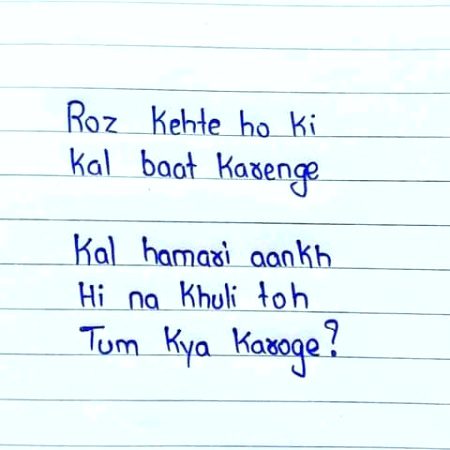 Roz kehte ho ki
Kal baat Karenge
Kal hamari aankh
Hi na khuli toh
Tum kya karoge?